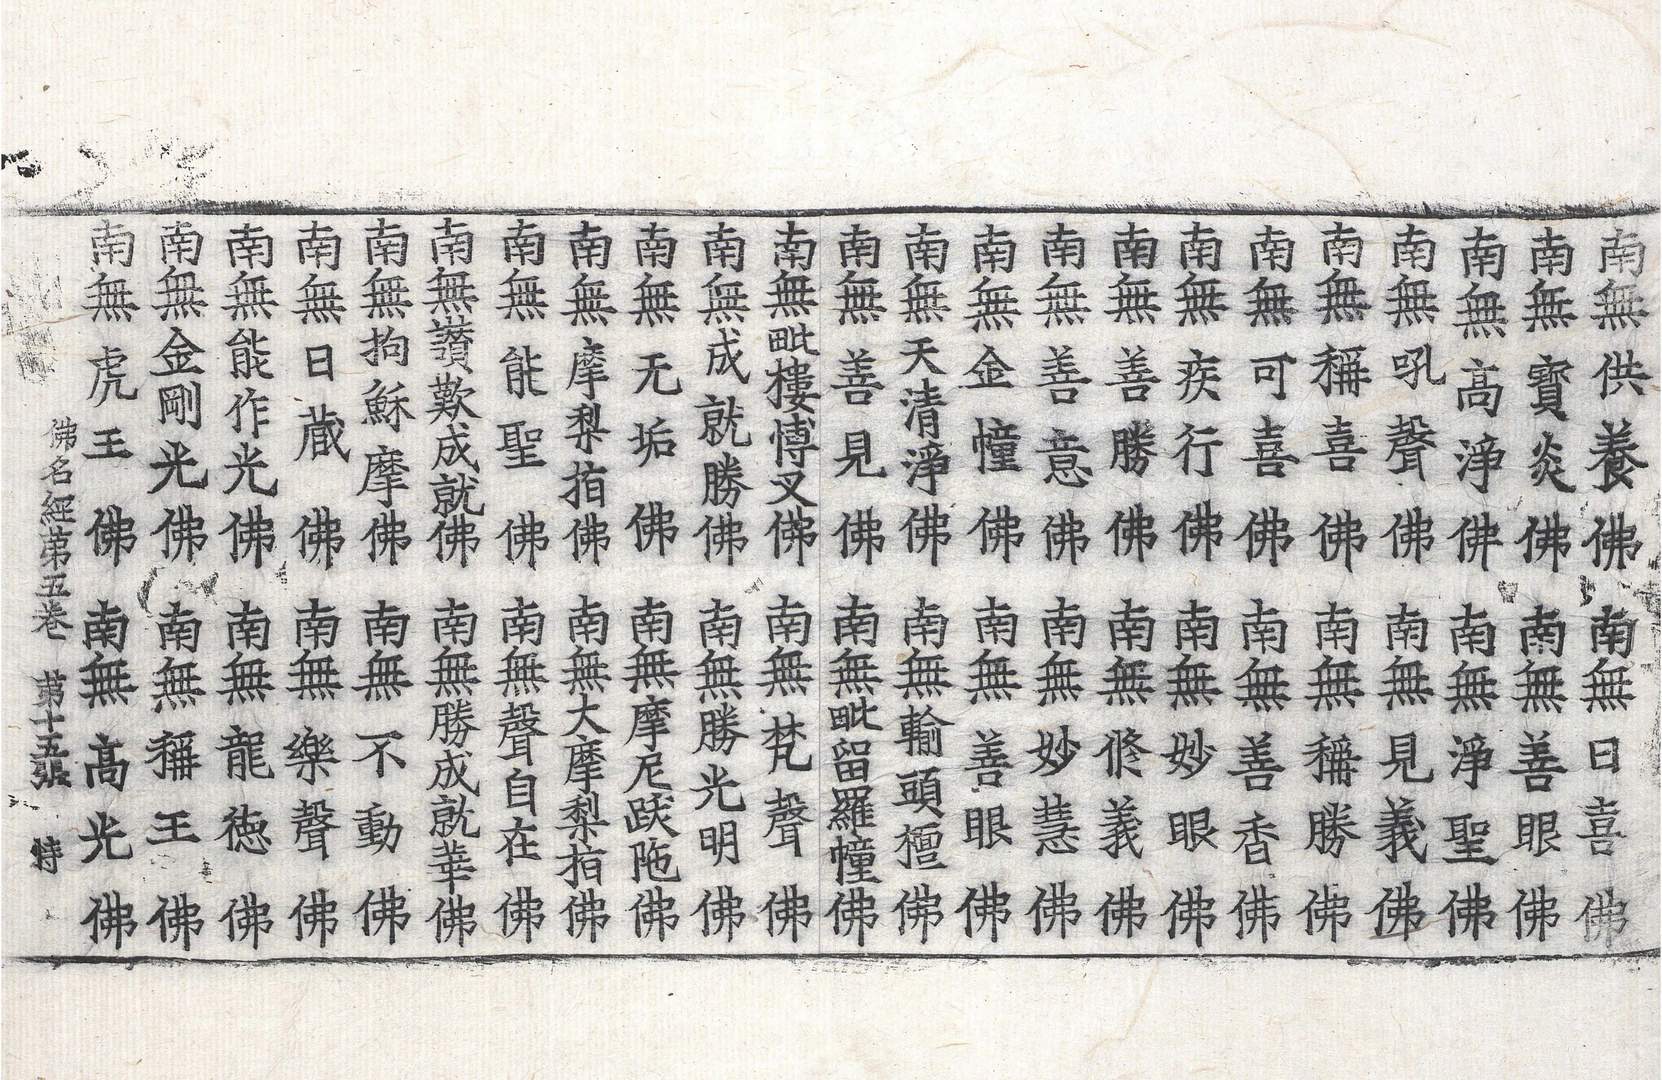 南無供養佛　南無日喜佛
南無寶炎佛　南無善眼佛
南無高淨佛　南無淨聖佛
南無吼聲佛　南無見義佛
南無稱喜佛　南無稱勝佛
南無可喜佛　南無善香佛
南無疾行佛　南無妙眼佛
南無善勝佛　南無修義佛
南無善意佛　南無妙慧佛
南無金幢佛　南無善眼佛
南無天清淨佛　南無輸頭檀佛
南無善見佛　南無毗留羅幢佛
南無毗樓博叉佛　南無梵聲佛
南無成就勝佛　南無勝光明佛
南無无垢佛　南無摩尼跋陁佛
南無摩梨指佛　南無大摩梨指佛
南無能聖佛　南無聲自在佛
南無讚歎成就佛　南無勝成就華佛
南無拘穌摩佛　南無不動佛
南無日藏佛　南無樂聲佛
南無能作光佛　南無龍德佛
南無金剛光佛　南無稱王佛
南無虎王佛　南無高光佛
佛名經第五卷　第十五張　特